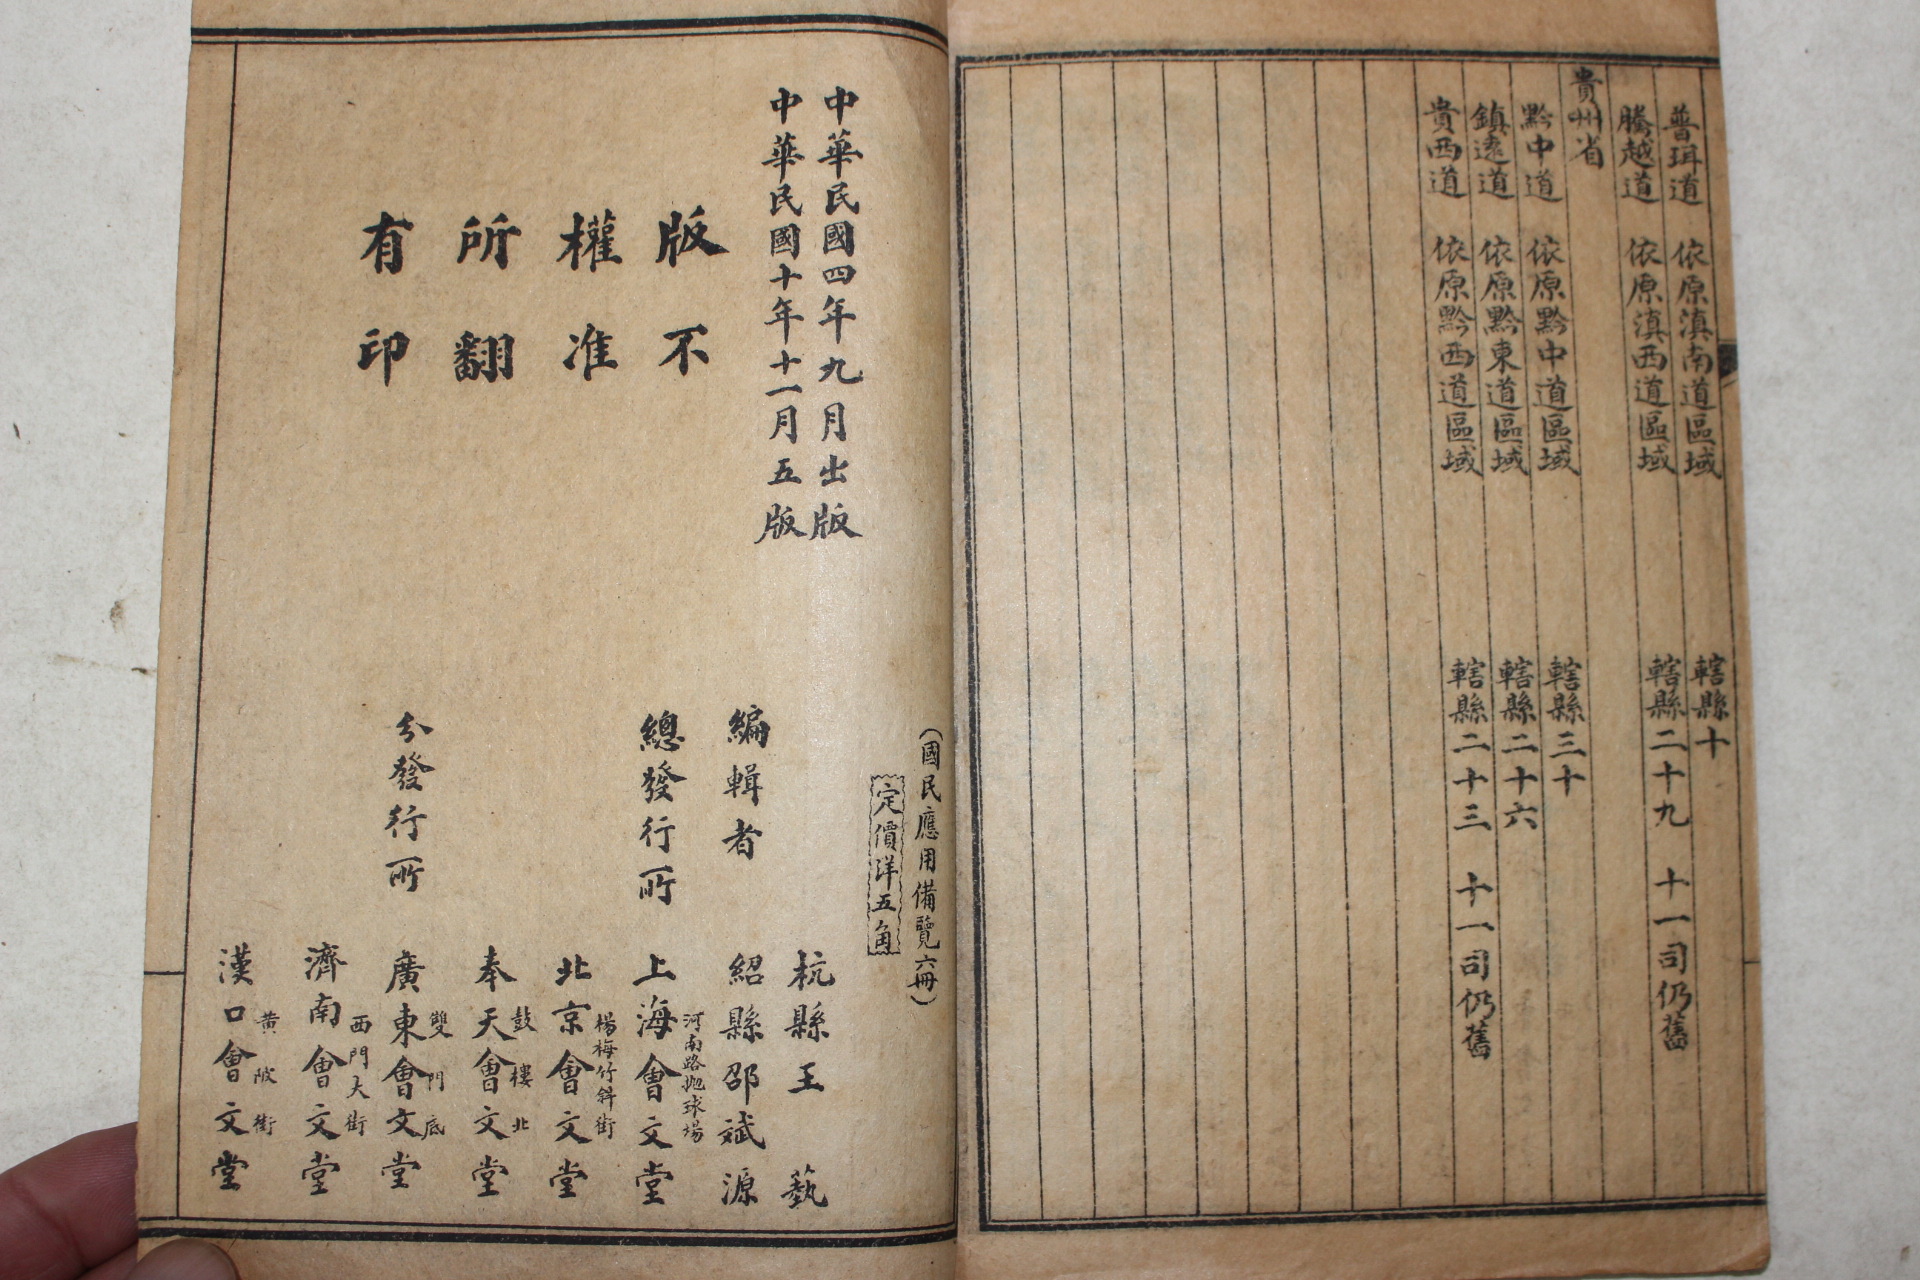 普珥道 依原滇南道區域 轄縣十
騰越道 依原滇西道區域 轄縣二十九 十一司仍舊
貴州省
黔中道 依原黔中道區域 轄縣三十
鎮遠道 依原黔東道區域 轄縣二十六
貴西道 依原黔西道區域 轄縣二十三 十一司仍舊
(國民應用備覽六冊)
定價洋五角
中華民國四年九月出版
中華民國十年十一月五版
版權所有
不准翻印
編輯者
杭縣王藝
紹縣邵斌源
總發行所
河南路抛球場
上海會文堂
分發行所
楊梅竹斜街
北京會文堂
鼓樓北
奉天會文堂
雙門底
廣東會文堂
西門大街
濟南會文堂
黃陂街
漢口會文堂